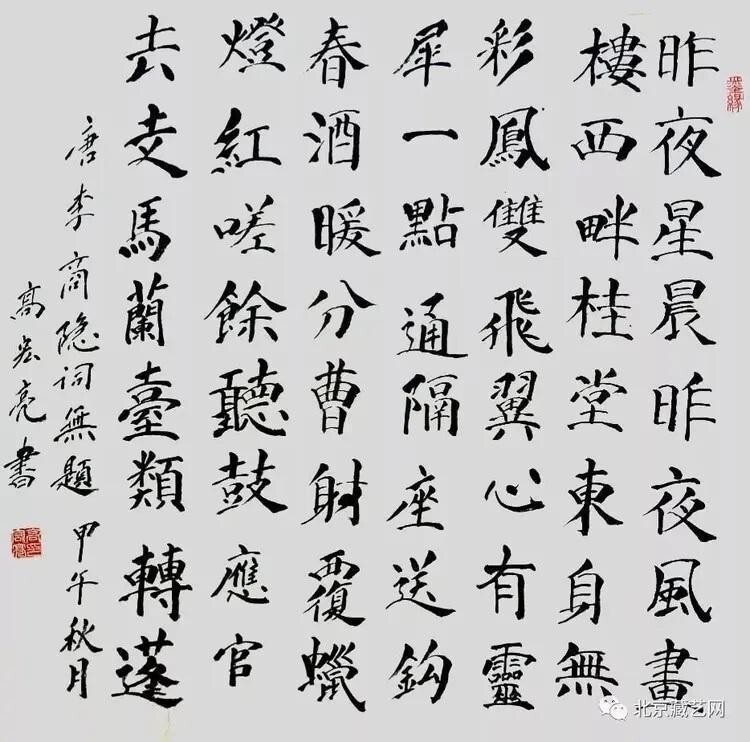 昨夜星晨昨夜風畫
樓西畔桂堂東身無
彩鳳雙飛翼心有靈
犀一點通隔座送鈎
春酒暖分曹射覆蠟
燈紅嗟餘聽鼓應官
去走馬蘭臺類轉蓬
唐李商隐词無題 甲午秋月
高宏亮書
北京藏艺网